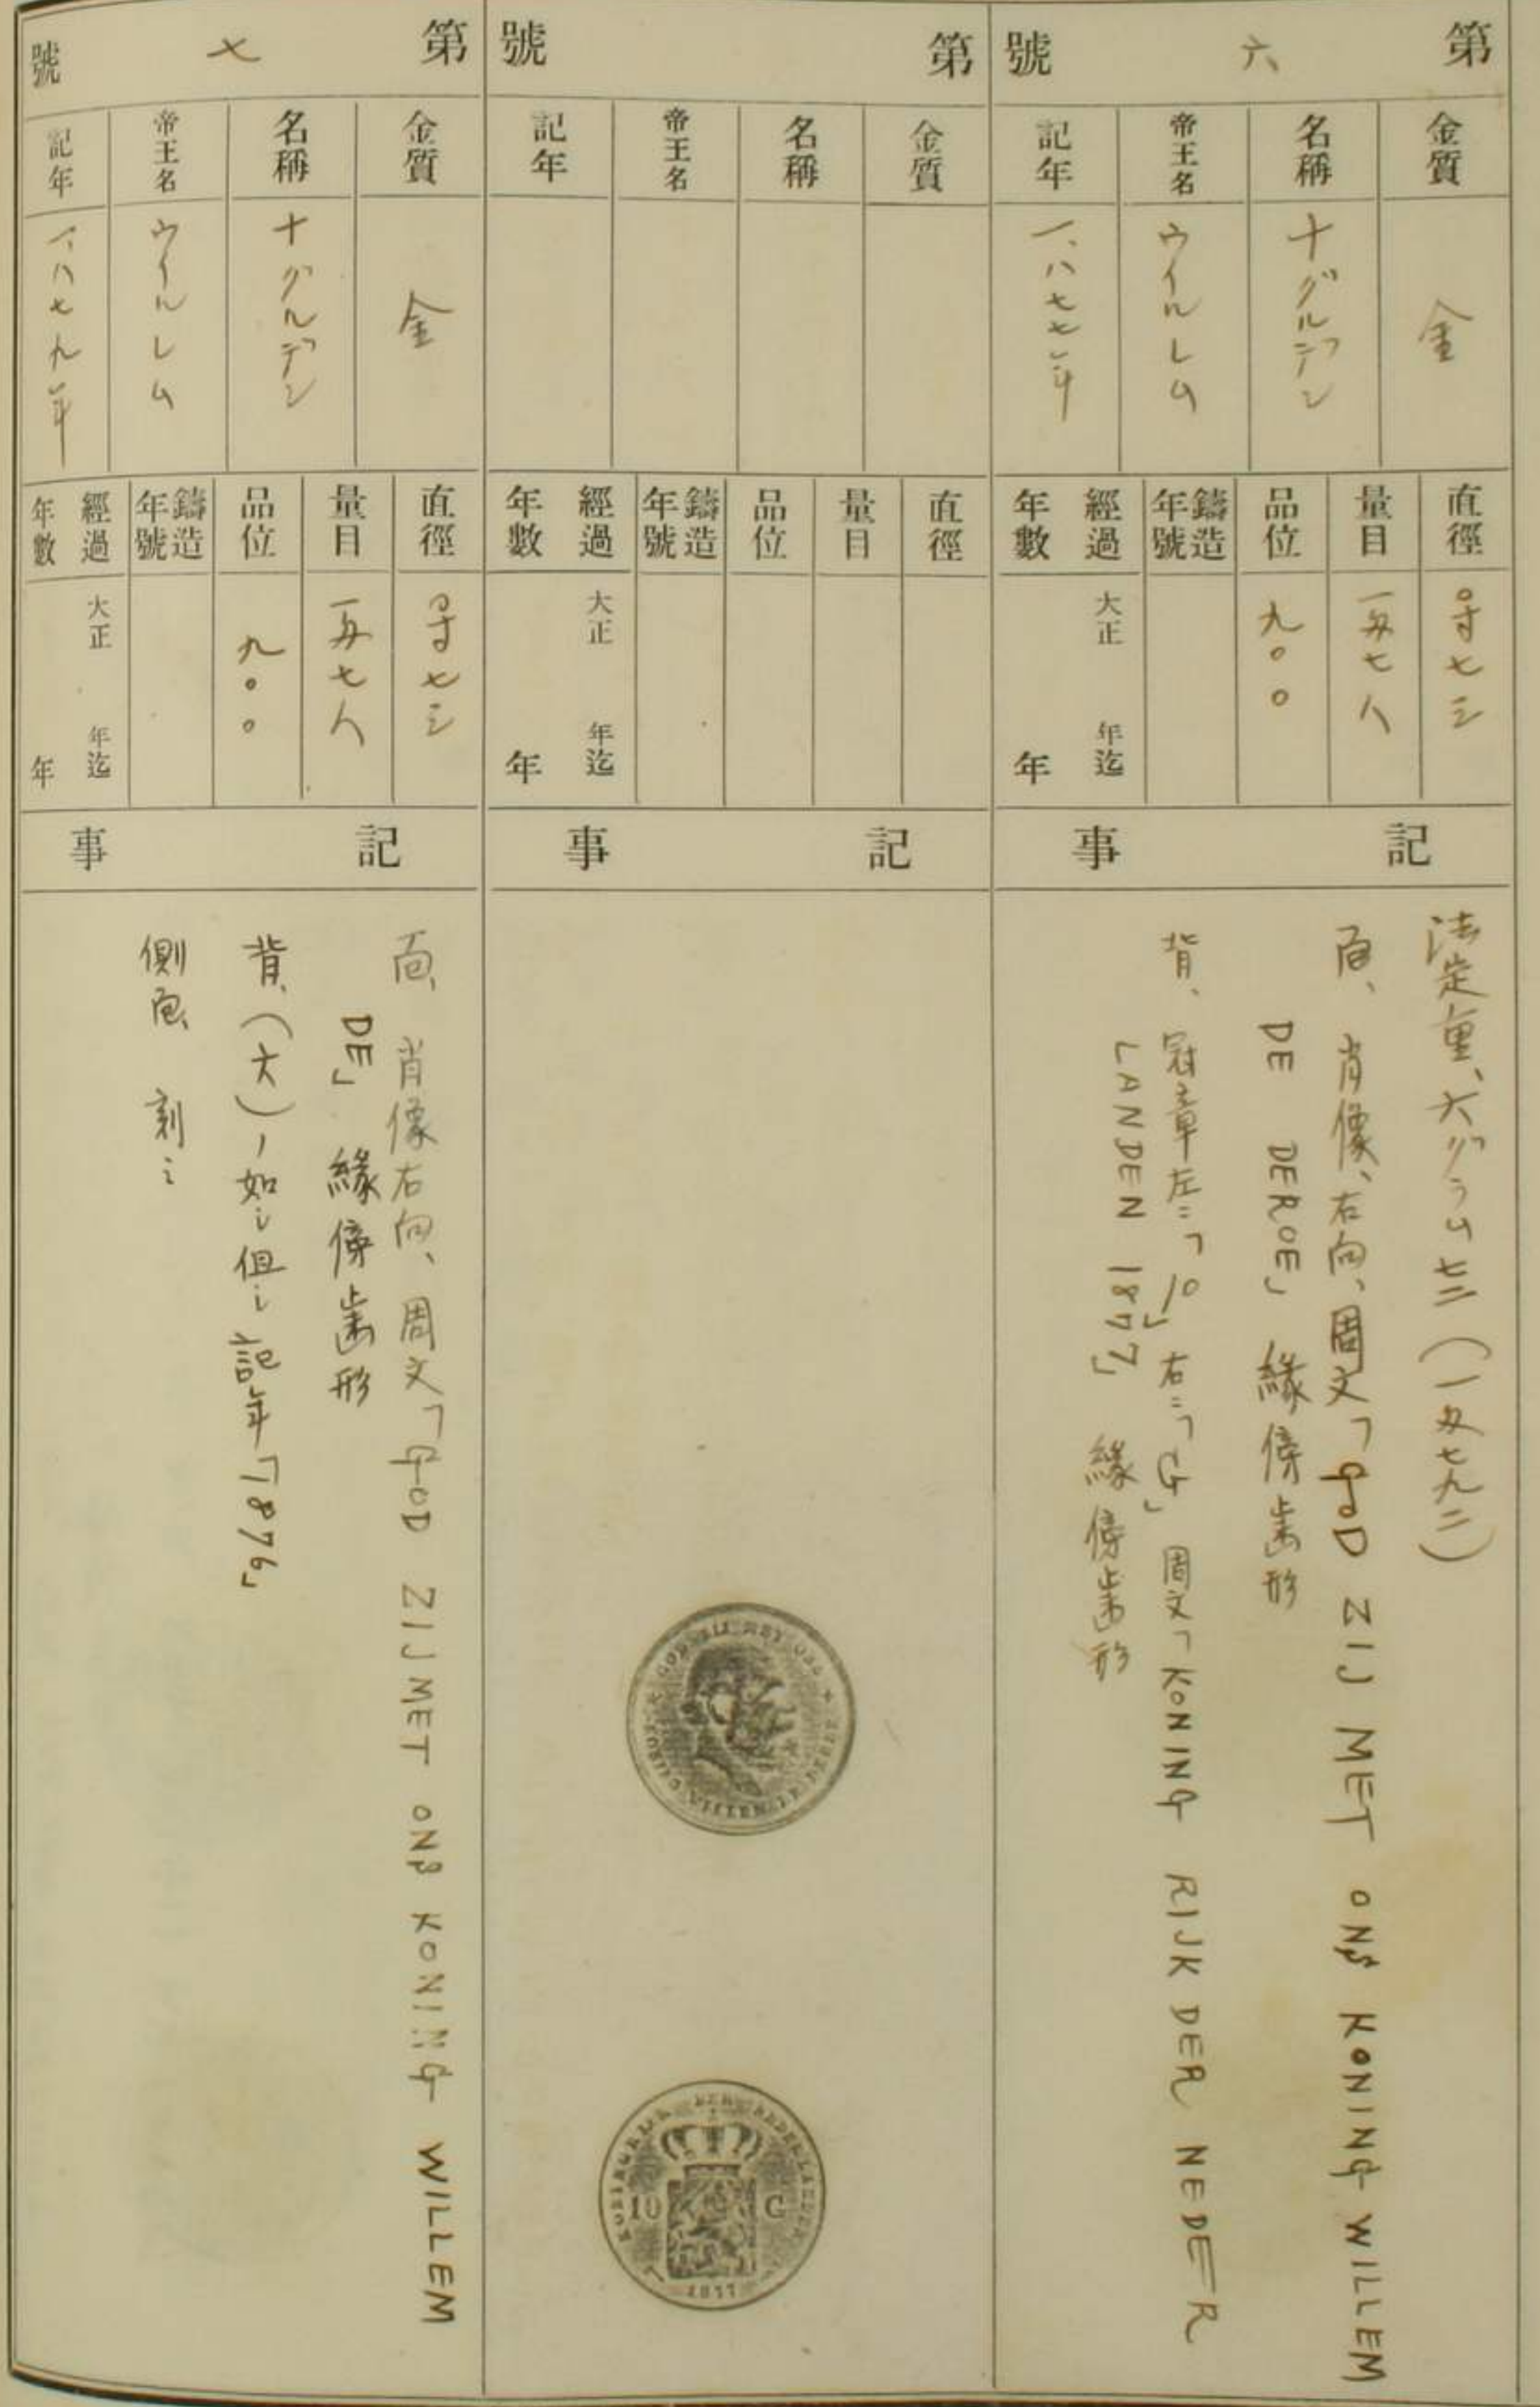 第六號
金質 金
名稱 十グルデン
帝王名 ウイルレム
記年 一、八七七年
直徑 〇寸七三
量目 一匁七八
品位 九〇〇
鑄造年號
經過年數 大正 年迄 年
記事
法定量、六グラム七二(一匁七九二)
面、肖像、右向、周文「GOD ZIJ MET ONS KONING WILLEM
DE DERDE」緣傍齒形
背、冠章左ニ「10」右ニ「G」周文「KONING RIJK DER NEDER
LANDEN 1877」緣傍齒形
第 號
金質
名稱
帝王名
記年
直徑
量目
品位
鑄造年號
經過年數 大正 年迄 年
記事
GOD ZIJ MET ONS
KONING WILLEM DE DERDE
KONINGRIJK DER NEDERLANDEN
10 G
1877
第七號
金質 金
名稱 十グルデン
帝王名 ウイルレム
記年 一、八七九年
直徑 〇寸七三
量目 一匁七八
品位 九〇〇
鑄造年號
經過年數 大正 年迄 年
記事
面、肖像右向、周文「GOD ZIJMET ONS KONING WILLEM
DE」緣傍齒形
背、(六)ノ如シ但シ記年「1876」
側面、刻シ